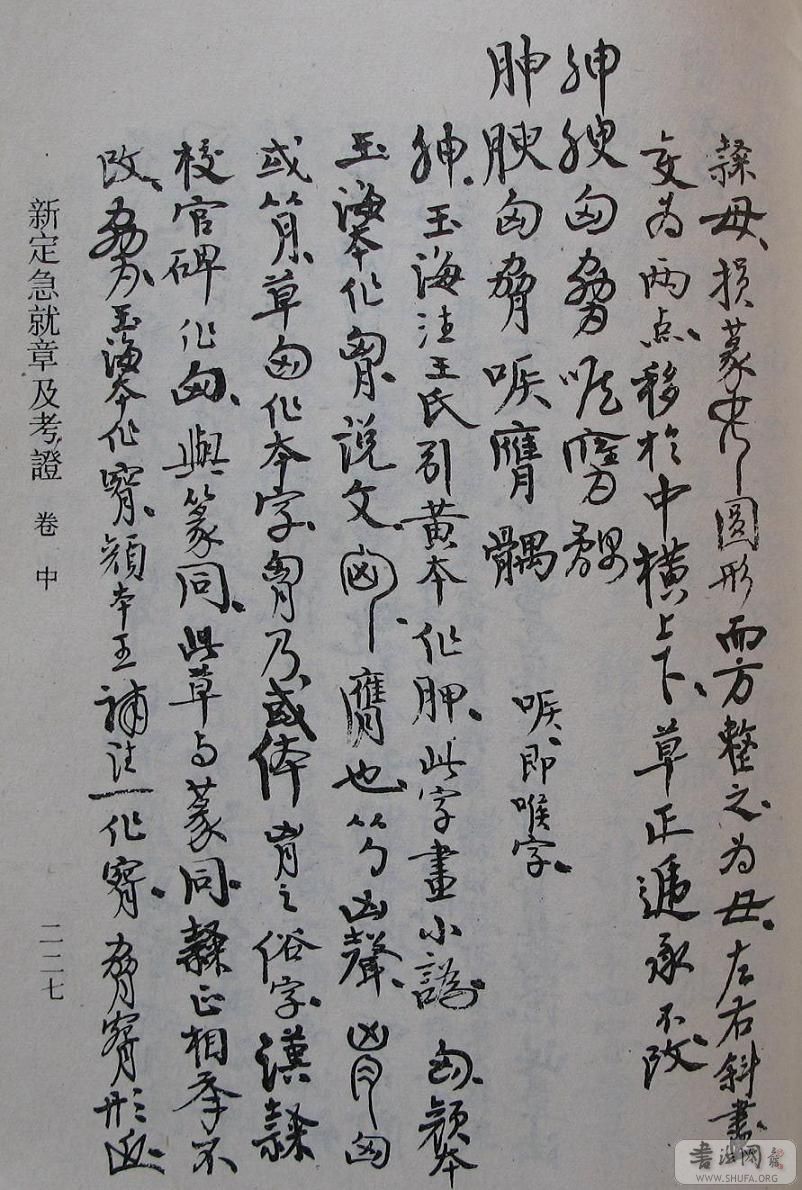 隸母、損篆 圓形而方整之為母、左右斜畫
变为两点、移於中横上下、草正遞承不改
肿腴匈脅喉膺髃
肿腴匈脅㗋膺髃 㗋、即喉字、
肿、玉海注王氏引黄本作胛、此字畫小譌 匈、顔本
玉海本作胷、说文、匈 膺也、从勹凶聲、肖 匈
或从肉、草匈作本字、胷乃或体 胷之俗字、漢隸
校官碑作匈、與篆同、此草与篆同、隸正相承不
改、脅、玉海本作䏮、顔本王補注一作䏮、脅䏮形近
新定急就章及考證 卷 中
二二七
書法网
WWW.SHUFA.ORG